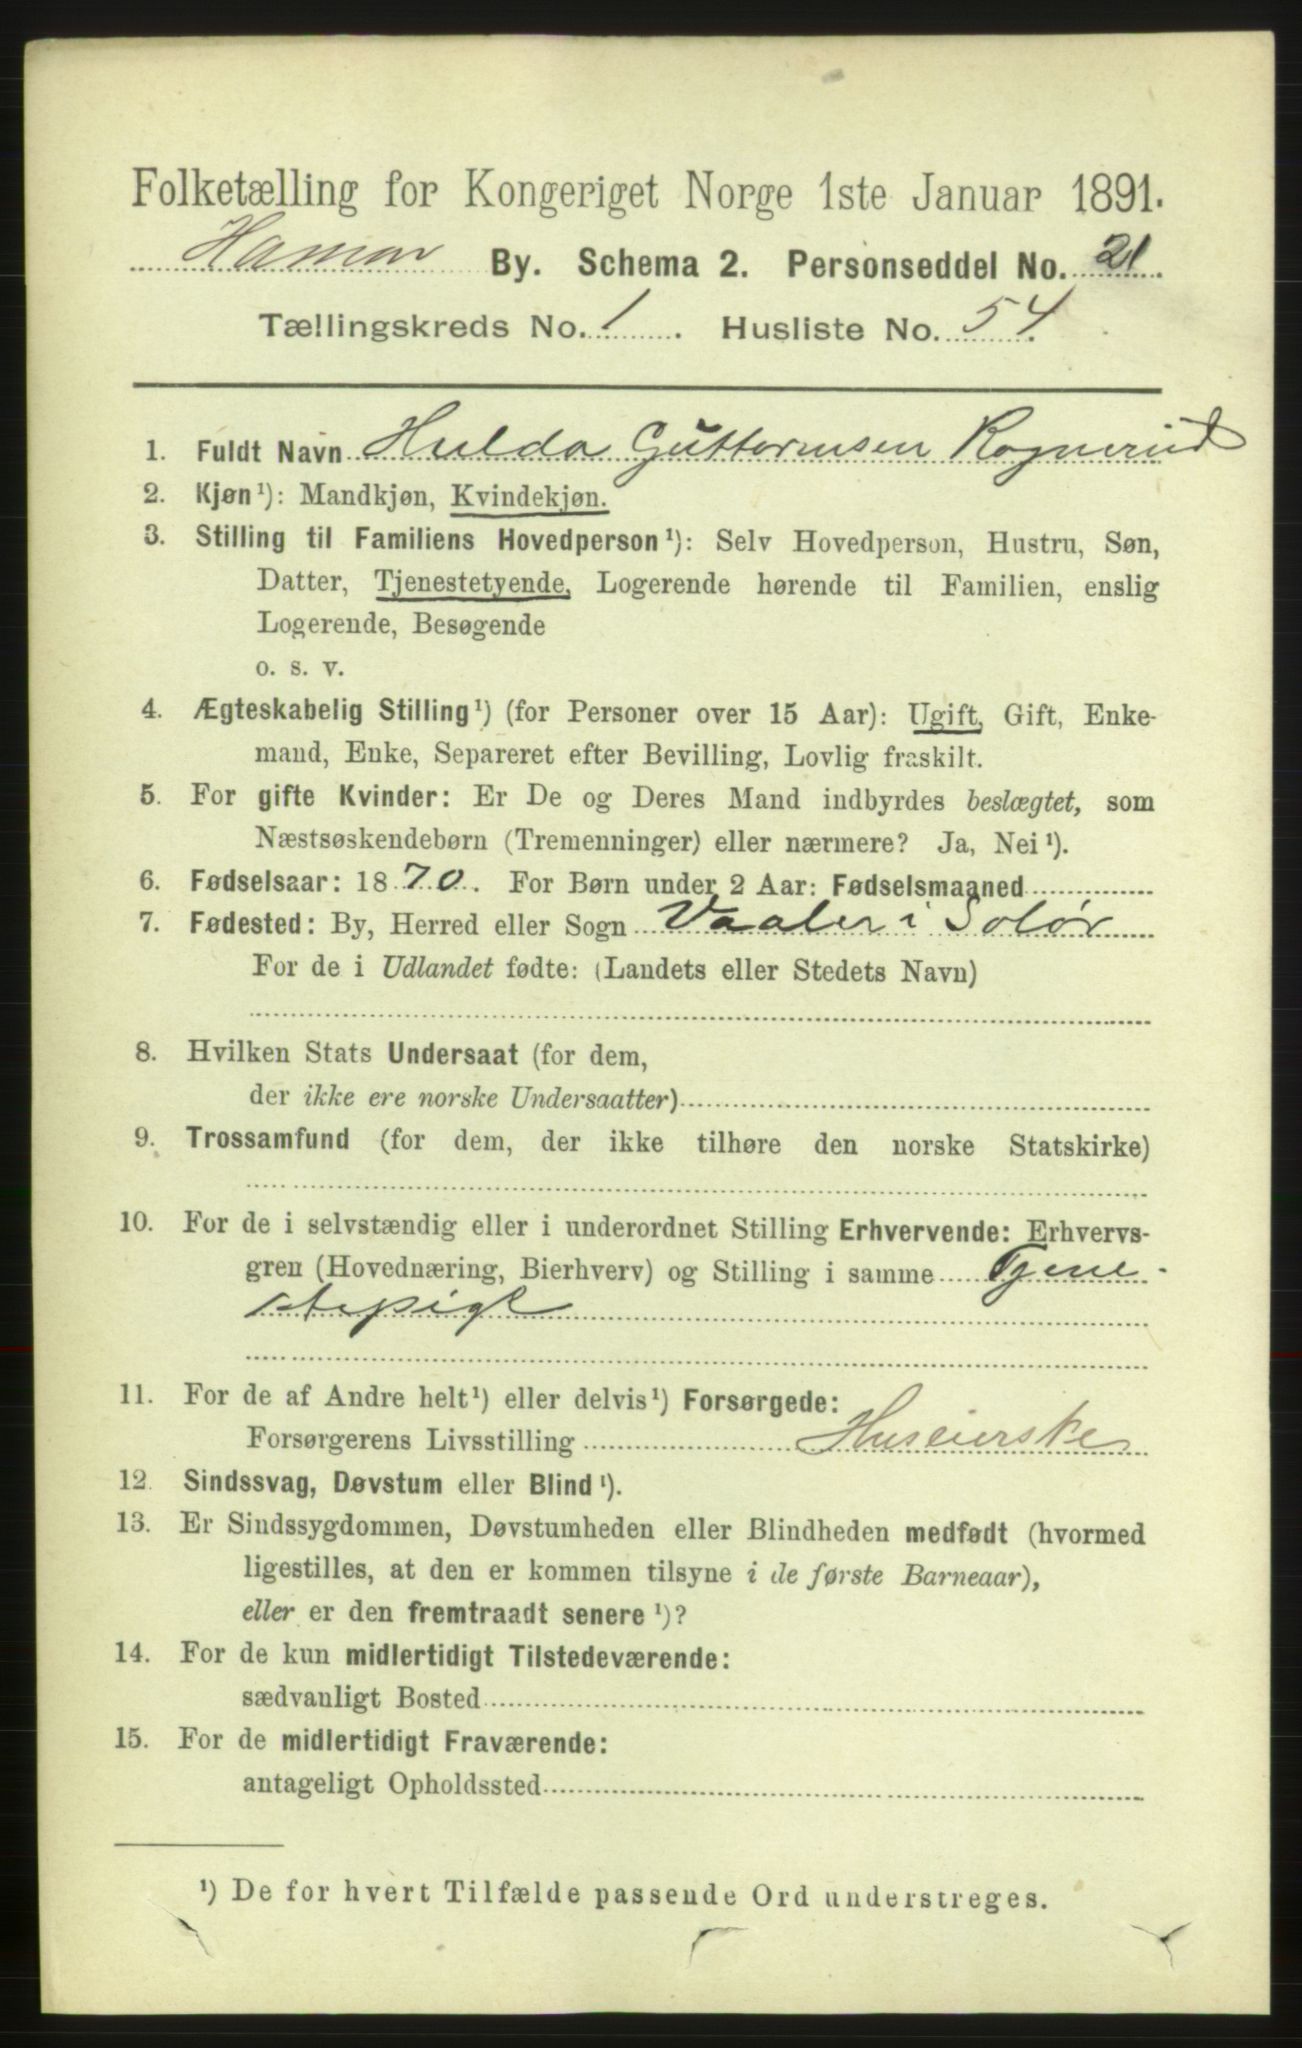 Folketælling for Kongeriget Norge 1ste Januar 1891.
Hamar By. Schema 2. Personseddel No. 21.
Tællingskreds No. 1. Husliste No. 54.
1. Fuldt Navn Hulda Guttormsen Rognerud
2. Kjøn¹): Mandkjøn, Kvindekjøn.
3. Stilling til Familiens Hovedperson¹): Selv Hovedperson, Hustru, Søn,
Datter, Tjenestetyende, Logerende hørende til Familien, enslig
Logerende, Besøgende
o. s. v.
4. Ægteskabelig Stilling¹) (for Personer over 15 Aar): Ugift, Gift, Enke-
mand, Enke, Separeret efter Bevilling, Lovlig fraskilt.
5. For gifte Kvinder: Er De og Deres Mand indbyrdes beslægtet, som
Næstsøskendebørn (Tremenninger) eller nærmere? Ja, Nei¹).
6. Fødselsaar: 1870. For Børn under 2 Aar: Fødselsmaaned
7. Fødested: By, Herred eller Sogn Vaaler i Solør
For de i Udlandet fødte: (Landets eller Stedets Navn)
8. Hvilken Stats Undersaat (for dem,
der ikke ere norske Undersaatter)
9. Trossamfund (for dem, der ikke tilhøre den norske Statskirke)
10. For de i selvstændig eller i underordnet Stilling Erhvervende: Erhvervs-
gren (Hovednæring, Bierhverv) og Stilling i samme Tjene-
stepige
11. For de af Andre helt¹) eller delvis¹) Forsørgede:
Forsørgerens Livsstilling Huseierske
12. Sindssvag, Døvstum eller Blind¹).
13. Er Sindssygdommen, Døvstumheden eller Blindheden medfødt (hvormed
ligestilles, at den er kommen tilsyne i de første Barneaar),
eller er den fremtraadt senere¹)?
14. For de kun midlertidigt Tilstedeværende:
sædvanligt Bosted
15. For de midlertidigt Fraværende:
antageligt Opholdssted
¹) De for hvert Tilfælde passende Ord understreges.